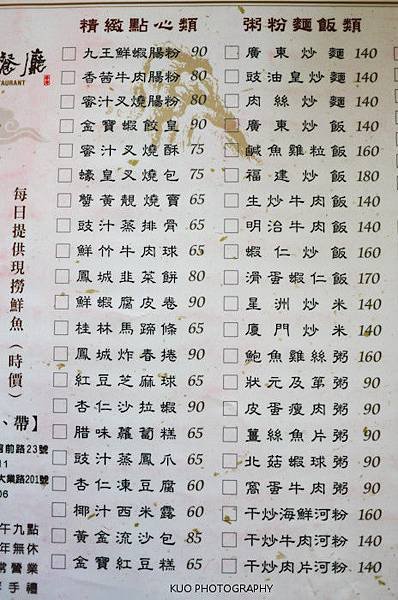 餐廳
RESTAURANT
每日提供現撈鮮魚(時價)
、帶】
宮前路23號
11
大業路201號
06
午九點
年無休
常營業
手禮
精緻點心類
九王鮮蝦腸粉 90
香茜牛肉腸粉 80
蜜汁叉燒腸粉 80
金寶蝦餃皇 90
蜜汁叉燒酥 75
蠔皇叉燒包 75
蟹黃靚燒賣 65
豉汁蒸排骨 65
鮮竹牛肉球 65
鳳城韭菜餅 80
鮮蝦腐皮卷 90
桂林馬蹄條 65
鳳城炸春捲 90
紅豆芝麻球 65
杏仁沙拉蝦 90
腊味蘿蔔糕 65
豉汁蒸鳳爪 65
杏仁凍豆腐 60
椰汁西米露 60
黃金流沙包 85
金寶紅豆糕 65
粥粉麵飯類
廣東炒麵 140
豉油皇炒麵 140
肉絲炒麵 140
廣東炒飯 140
鹹魚雞粒飯 160
福建炒飯 180
生炒牛肉飯 140
明治牛肉飯 140
蝦仁炒飯 160
滑蛋蝦仁飯 170
星洲炒米 140
廈門炒米 140
鮑魚雞絲粥 160
狀元及第粥 90
皮蛋瘦肉粥 90
薑絲魚片粥 90
北菇蝦球粥 90
窩蛋牛肉粥 90
干炒海鮮河粉 160
干炒牛肉河粉 140
干炒肉片河粉 140
KUO PHOTOGRAPHY